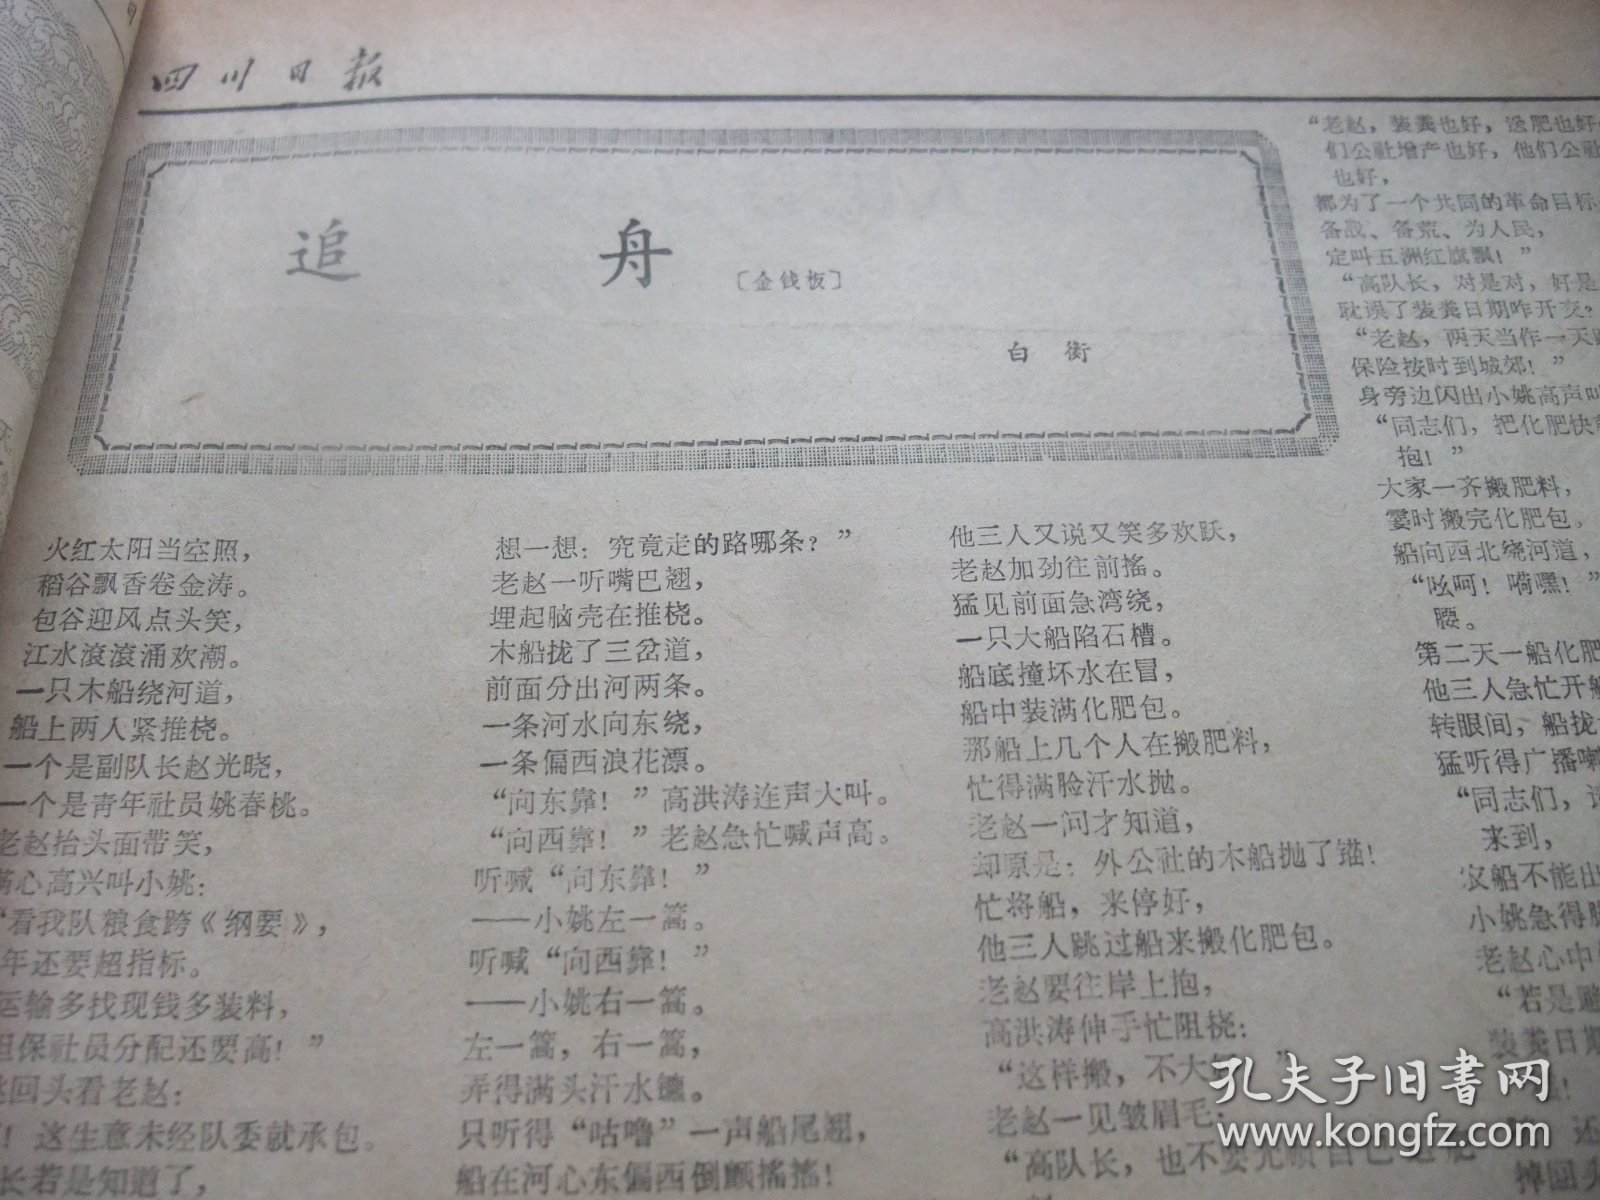 四川日报
追舟
〔金钱板〕
白衡
火红太阳当空照，
稻谷飘香卷金涛。
包谷迎风点头笑，
江水滚滚涌欢潮。
一只木船绕河道，
船上两人紧推桡。
一个是副队长赵光晓，
一个是青年社员姚春桃。
老赵抬头面带笑，
满心高兴叫小姚：
“看我队粮食跨《纲要》，
年还要超指标。
运输多找现钱多装料，
担保社员分配还要高！”
回头看老赵：
！这生意未经队委就承包。
长若是知道了，
想一想：究竟走的路哪条？”
老赵一听嘴巴翘，
埋起脑壳在推桡。
木船拢了三岔道，
前面分出河两条。
一条河水向东绕，
一条偏西浪花漂。
“向东靠！”高洪涛连声大叫。
“向西靠！”老赵急忙喊声高。
听喊“向东靠！”
——小姚左一篙。
听喊“向西靠！”
——小姚右一篙。
左一篙，右一篙，
弄得满头汗水
只听得“咕噜”一声船尾翘，
船在河心东偏西倒颤摇摇！
他三人又说又笑多欢跃，
老赵加劲往前摇。
猛见前面急湾绕，
一只大船陷石槽。
船底撞坏水在冒，
船中装满化肥包。
那船上几个人在搬肥料，
忙得满脸汗水抛。
老赵一问才知道，
却原是：外公社的木船抛了锚！
忙将船，来停好，
他三人跳过船来搬化肥包。
老赵要往岸上抱，
高洪涛伸手忙阻挠：
“这样搬，不大
老赵一见皱眉毛：
“高队长，也不要光顾自己
“老赵，装粪也好，送肥也好
们公社增产也好，他们公社
也好，
都为了一个共同的革命目标
备战、备荒、为人民，
定叫五洲红旗飘！”
“高队长，对是对，好是
耽误了装粪日期咋开交？
“老赵，两天当作一天
保险按时到城郊！”
身旁边闪出小姚高声叫
“同志们，把化肥快
抱！”
大家一齐搬肥料，
霎时搬完化肥包。
船向西北绕河道，
“吆呵！嗬嘿！”
腰。
第二天一船化肥
他三人急忙开船
转眼间，船拢
猛听得广播喇
“同志们，请
来到，
农船不能出
小姚急得
老赵心中
“若是
装粪日期
还
掉回头
孔夫子旧书网
www.kongfz.com